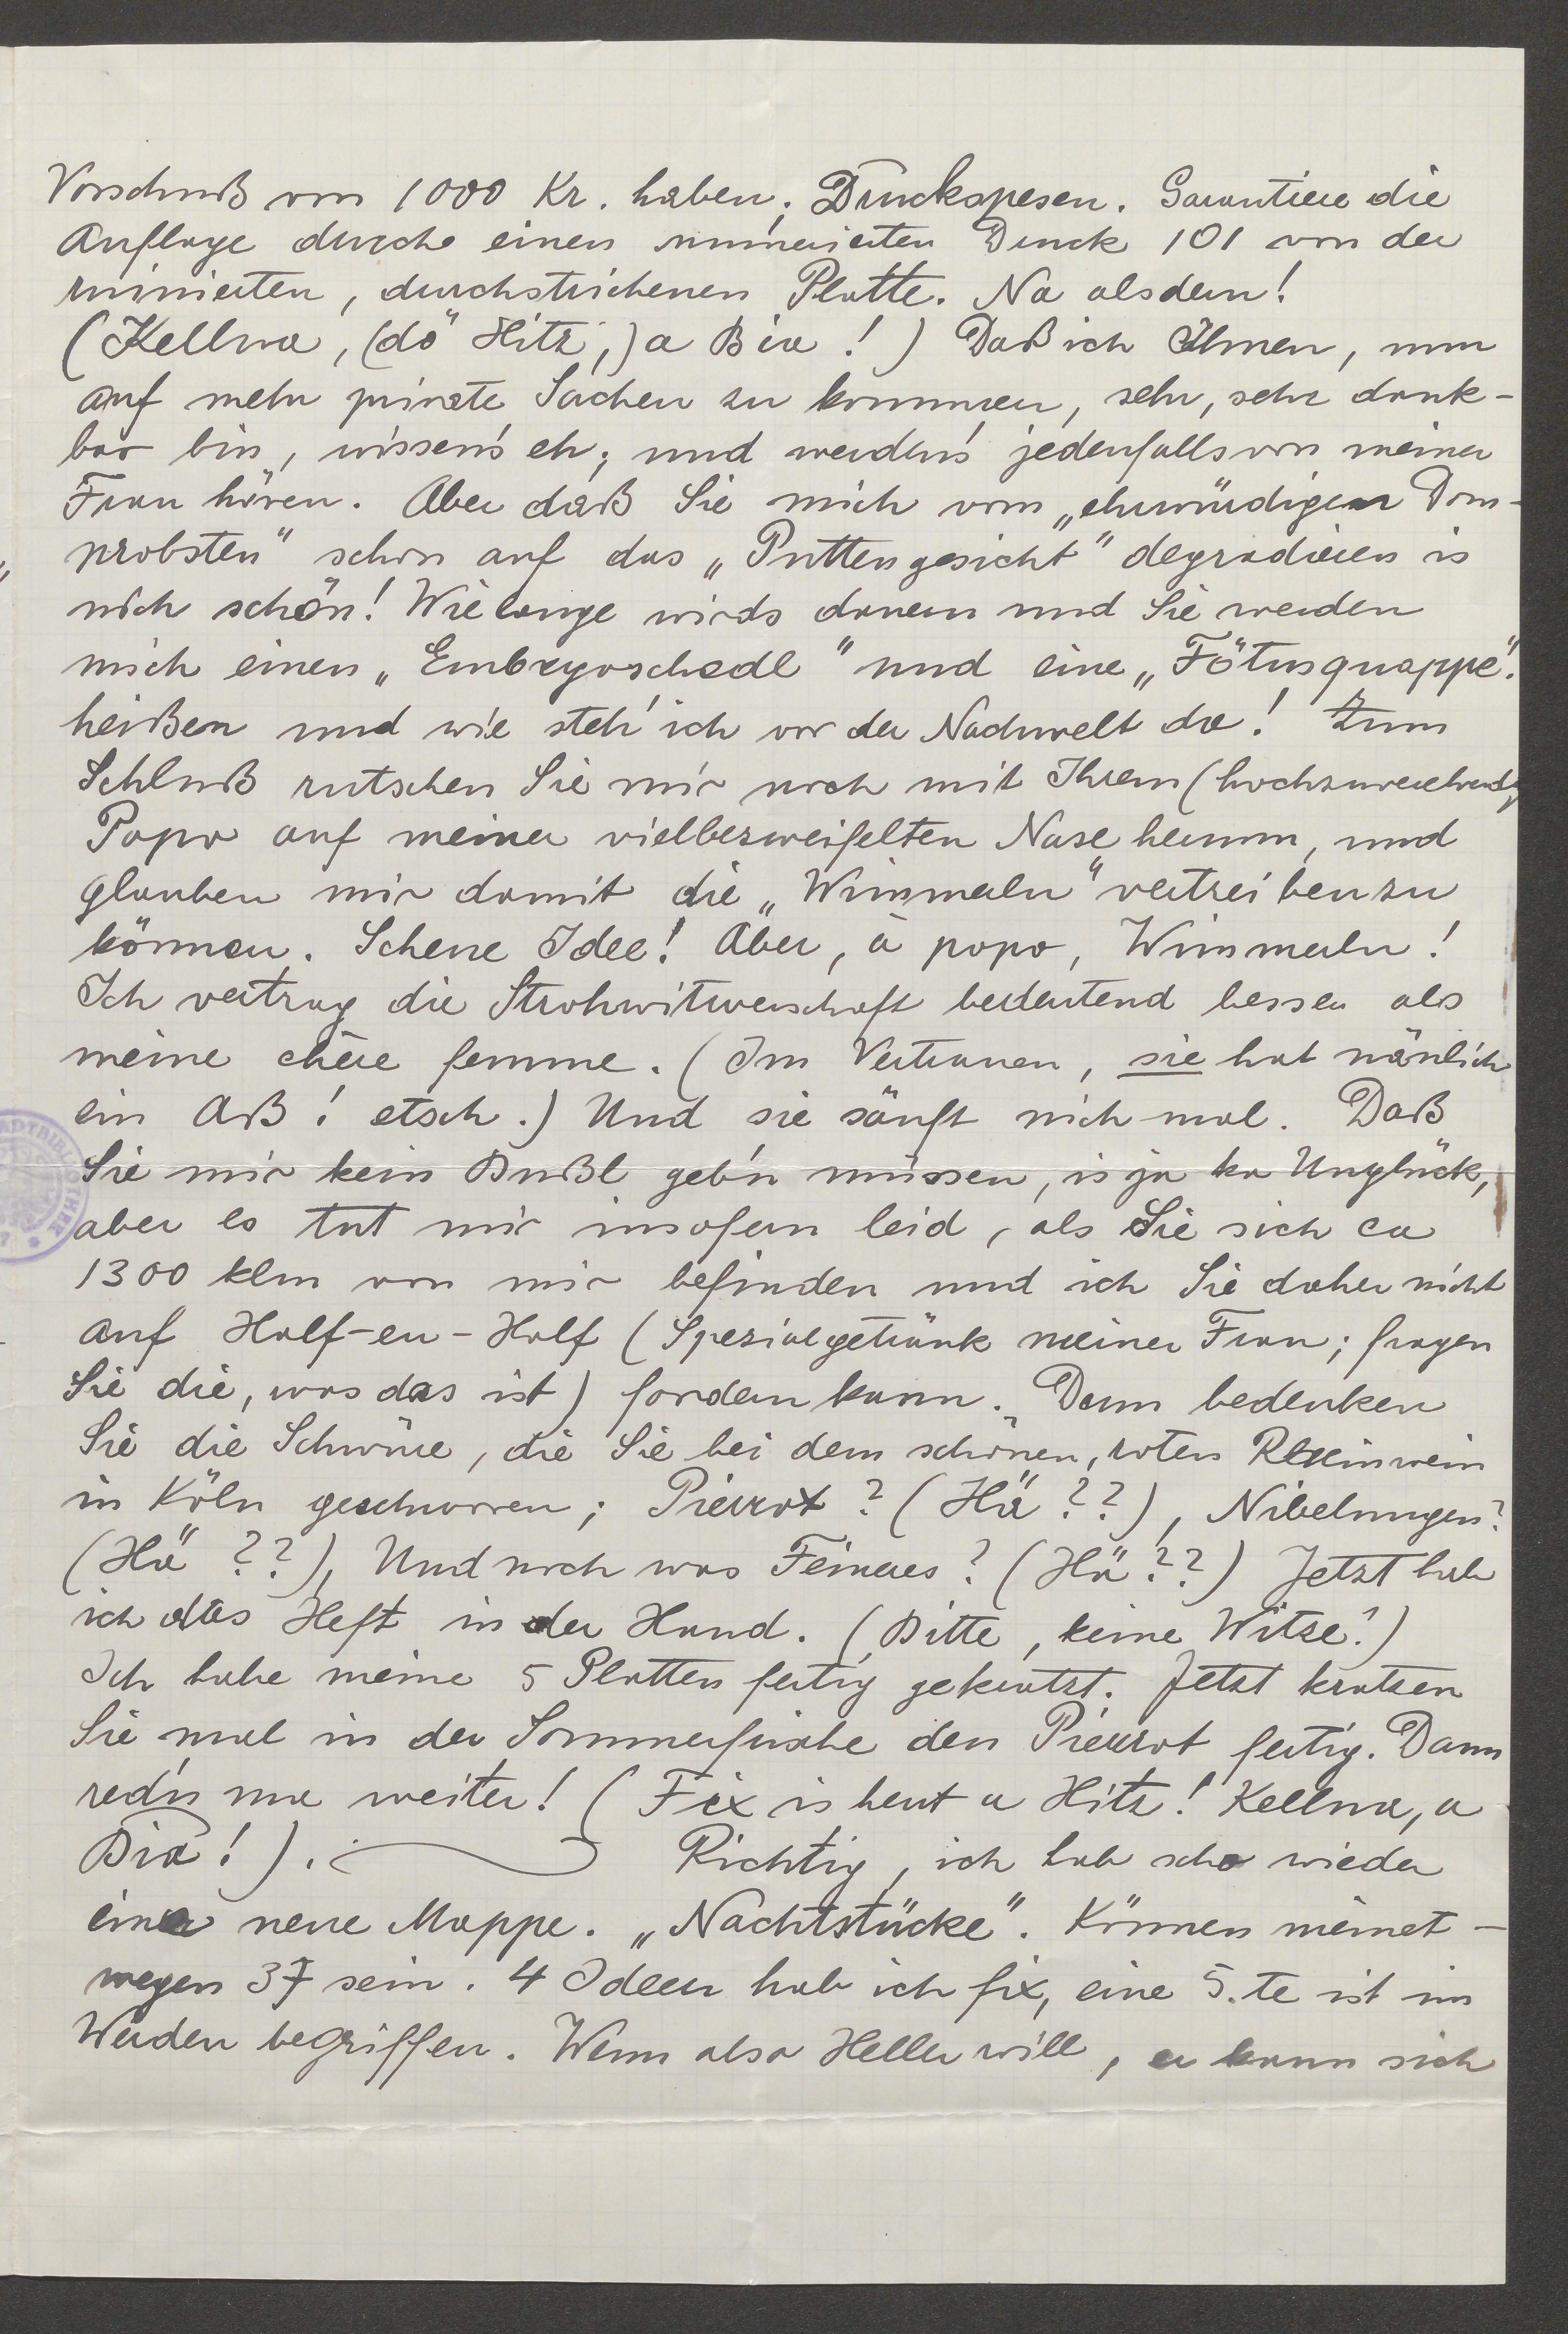 Vorschuß von 1000 Kr. haben; Druckspesen. Garantiere die
Auflage durch einen numerierten Druck 101 von der
ruinierten, durchstrichenen Platte. Na alsdern!
(Kellna, (dö Hitz,) a Bia!) Daß ich Ihnen, nun
auf mehr private Sachen zu kommen, sehr, sehr dank-
bar bin, wissen's eh; und werden's jedenfalls von meiner
Frau hören. Aber daß Sie mich vom „ehrwürdigen Dom-
probsten" schon auf das „Puttengesicht" degradieren is
nich schön! Wie lange wirds dauern und Sie werden
mich einen „Embryoschedl" und eine „Fötusquappe".
heißen und wie steh' ich vor der Nachwelt da! Zum
Schluß rutschen Sie mir noch mit Ihrem (hochzuverehrend)
Popo auf meiner vielbezweifelten Nase herum, und
glauben mir damit die „Wimmerln" vertreiben zu
können. Schene Idee! Aber, à popo, Wimmerln!
Ich vertrag die Strohwitwerschaft bedeutend besser als
meine chère femme. (Im Vertrauen, sie hat nämlich
ein Aß! etsch.) Und sie sänft nich mal. Daß
Sie mir kein Bußl geb'n müssen, is ja ka Unglück,
aber es tut mir insofern leid, als Sie sich ca
1300 klm von mir befinden und ich Sie daher nicht
auf Half-en-Half (Spezialgetränk meiner Frau; fragen
Sie die, was das ist) fordern kann. Dann bedenken
Sie die Schwüre, die Sie bei dem schönen, roten Rheinwein
in Köln geschworen; Pierrot? (Hä??), Nibelungen?
(Hä??), Und noch was Feineres? (Hä??) Jetzt hab
ich das Heft in der Hand. (Bitte, keine Witze!)
Ich habe meine 5 Platten fertig gekratzt. Jetzt kratzen
Sie mal in der Sommerfrische den Pierrot fertig. Dann
red'n ma weiter! (Fix is heut a Hitz! Kellna, a
Bia!). Richtig, ich hab scho wieder
eine neue Mappe. „Nachtstücke". Können meinet-
wegen 37 sein. 4 Ideen hab ich fix, eine 5.te ist im
Werden begriffen. Wenn also Heller will, er kann sich